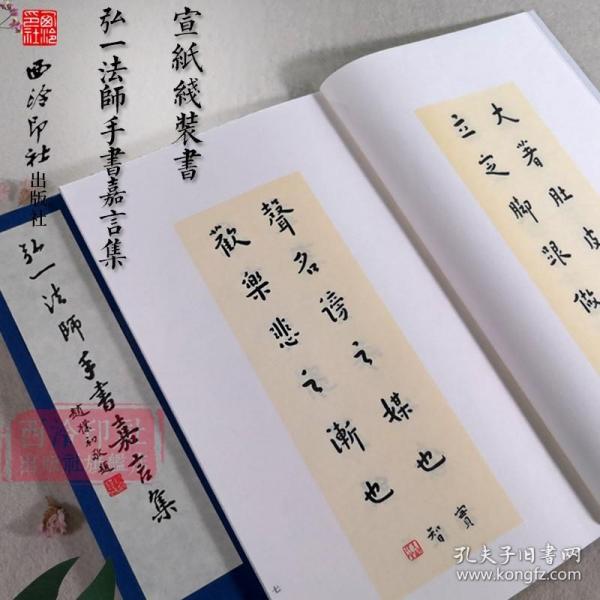 宣紙綫裝書
弘一法師手書嘉言集
西泠印社
西泠印社出版社
弘一法師手書嘉言集
趙樸初敬題
西泠印社
出版社旗艦店
聲名謗之媒也
歡樂悲之漸也
實智
七
大著肚皮
立定腳跟做
孔夫子旧书网
www.kongfz.com